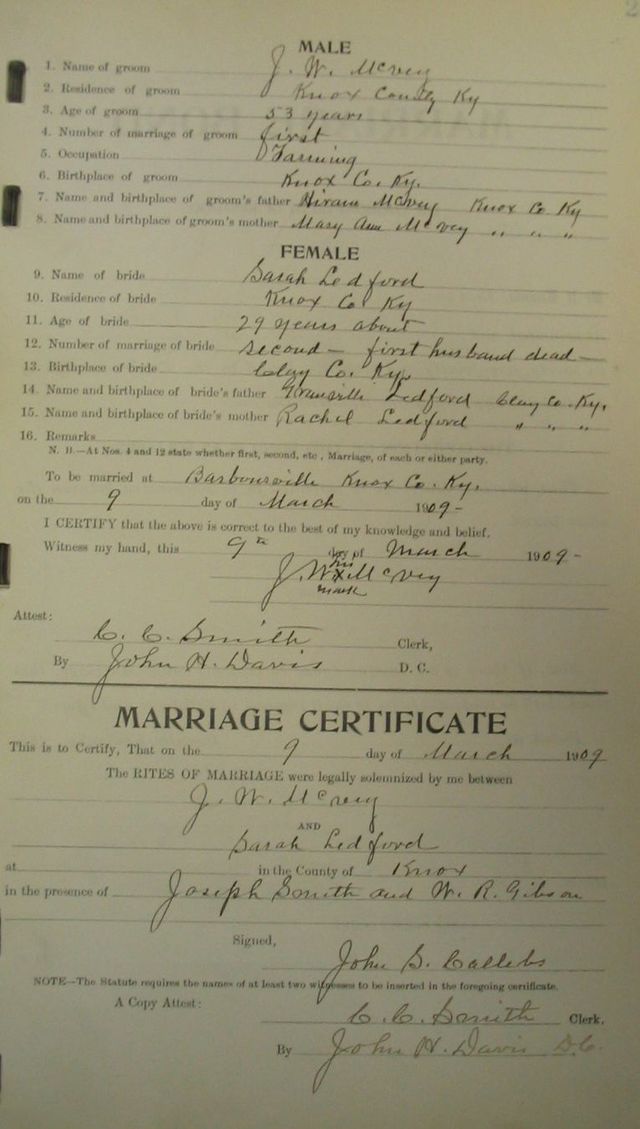 MALE
1. Name of groom J. W. McVey
2. Residence of groom Knox County Ky
3. Age of groom 53 years
4. Number of marriage of groom first
5. Occupation Farming
6. Birthplace of groom Knox Co. Ky.
7. Name and birthplace of groom's father Hiram McVey Knox Co Ky
8. Name and birthplace of groom's mother Mary Ann McVey " " "
FEMALE
9. Name of bride Sarah Ledford
10. Residence of bride Knox Co Ky
11. Age of bride 29 years about
12. Number of marriage of bride second - first husband dead -
13. Birthplace of bride Clay Co. Ky.
14. Name and birthplace of bride's father Granville Ledford Clay Co. Ky.
15. Name and birthplace of bride's mother Rachel Ledford " " "
16. Remarks
N. B.—At Nos. 4 and 12 state whether first, second, etc., Marriage, of each or either party.
To be married at Barbourville Knox Co. Ky.
on the 9 day of March 1909-
I CERTIFY that the above is correct to the best of my knowledge and belief.
Witness my hand, this 9th day of March 1909-
his
J. W. x McVey
mark
Attest:
C. C. Smith Clerk,
By John H. Davis D. C.
MARRIAGE CERTIFICATE
This is to Certify, That on the 9 day of March 1909
The RITES OF MARRIAGE were legally solemnized by me between
J. W. McVey
AND
Sarah Ledford
at in the County of Knox
in the presence of Joseph Smith and W. R. Gibson
Signed,
John G. Callebs
NOTE—The Statute requires the names of at least two witnesses to be inserted in the foregoing certificate.
A Copy Attest:
C. C. Smith Clerk.
By John H. Davis D.C.